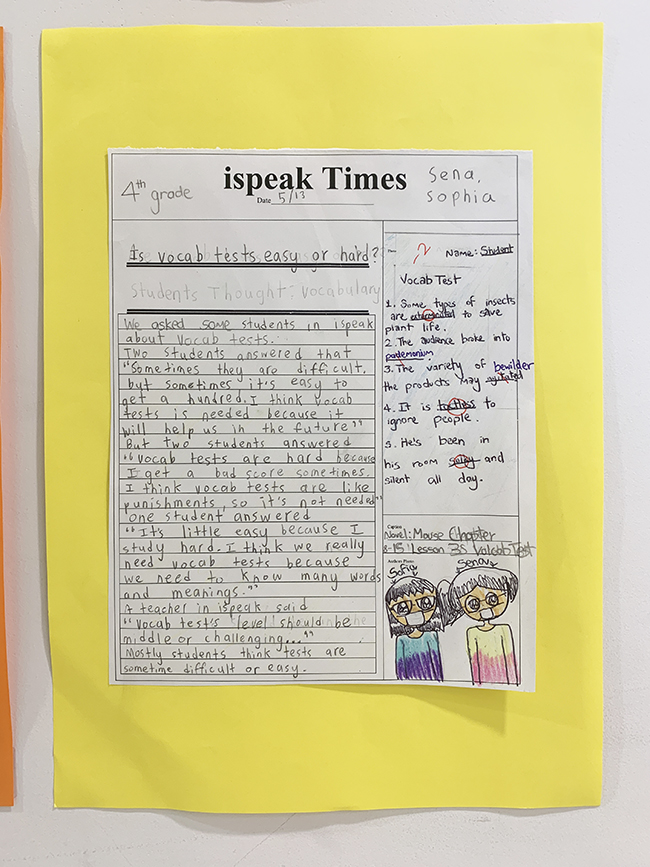 4th grade
ispeak Times
Date 5/13
Sena,
Sophia
Is vocab tests easy or hard?
Students Thought: Vocabulary
We asked some students in ispeak
about vocab tests.
Two students answered that
"Sometimes they are difficult,
but sometimes it's easy to
get a hundred. I think vocab
tests is needed because it
will help us in the future"
But two students answered
"vocab tests are hard because
I get a bad score sometimes.
I think vocab tests are like
punishments, so it's not needed"
one student answered
"It's little easy because I
study hard. I think we really
need vocab tests because
we need to know many words
and meanings."
A teacher in ispeak said
"Vocab test's level should be
middle or challenging..."
Mostly students think tests are
sometime difficult or easy.
Name: Student
Vocab Test
1. Some types of insects
are to save
plant life.
2. The audience broke into
pademonium.
3. The variety of bewilder
the products may agitated
4. It is tactless to
ignore people.
5. He's been in
his room and
silent all day.
Caption
Novel: Mouse Chapter
8-15! Lesson 35 Valcab Test
Authors Photo
Sofia
Sena